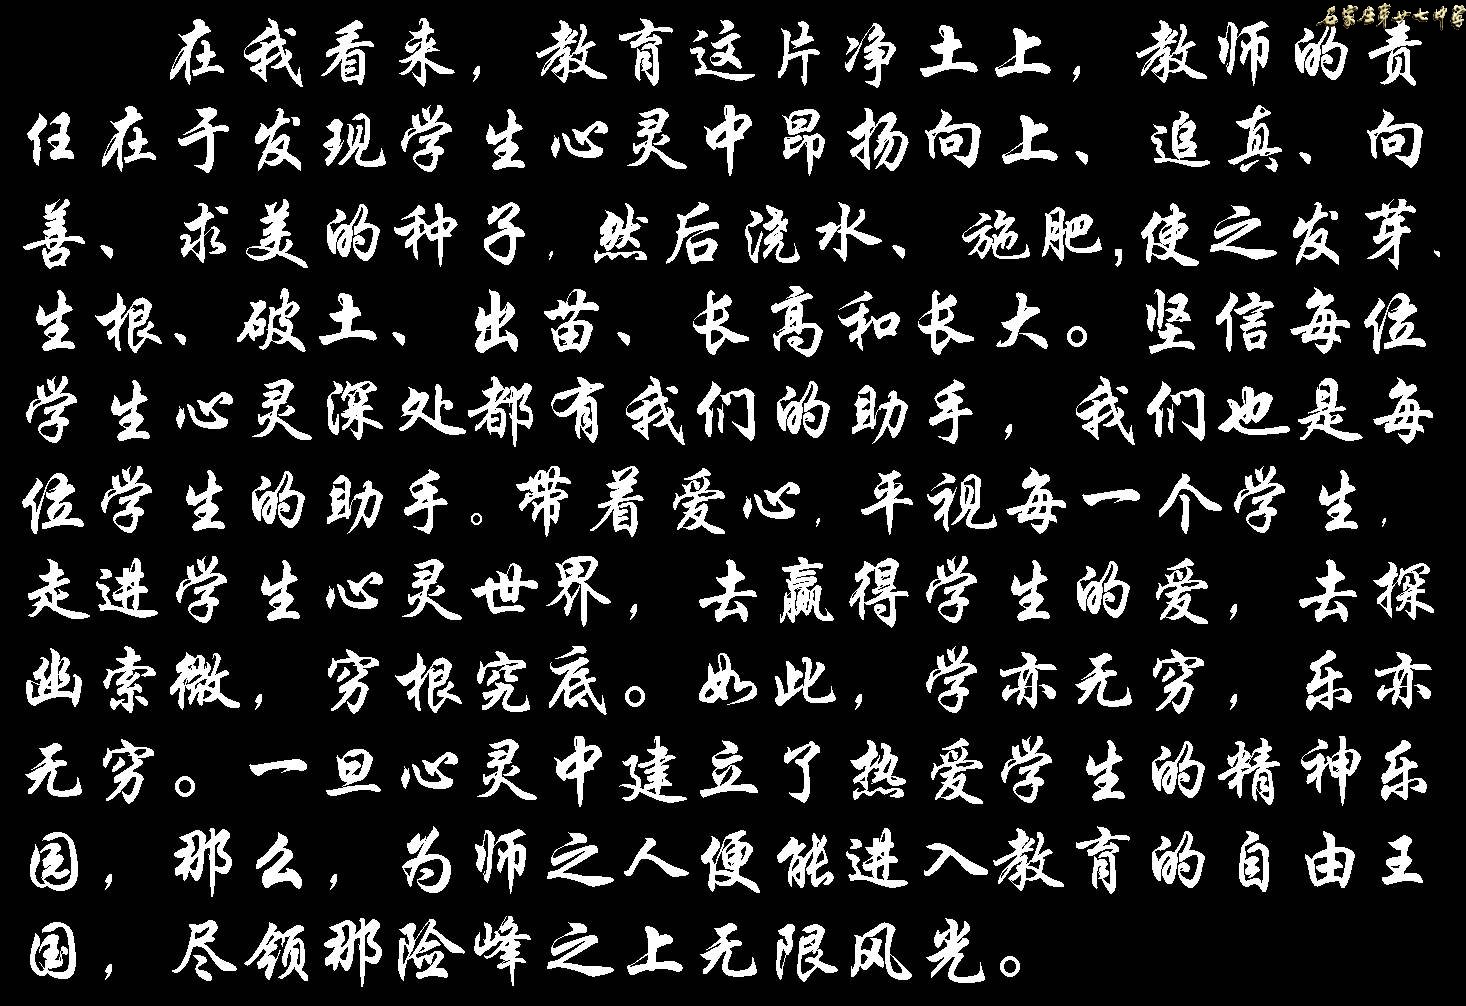 石家庄第廿七中学
在我看来，教育这片净土上，教师的责
任在于发现学生心灵中昂扬向上、追真、向
善、求美的种子，然后浇水、施肥,使之发芽、
生根、破土、出苗、长高和长大。坚信每位
学生心灵深处都有我们的助手，我们也是每
位学生的助手。带着爱心，平视每一个学生，
走进学生心灵世界，去赢得学生的爱，去探
幽索微，穷根究底。如此，学亦无穷，乐亦
无穷。一旦心灵中建立了热爱学生的精神乐
园，那么，为师之人便能进入教育的自由王
国，尽领那险峰之上无限风光。